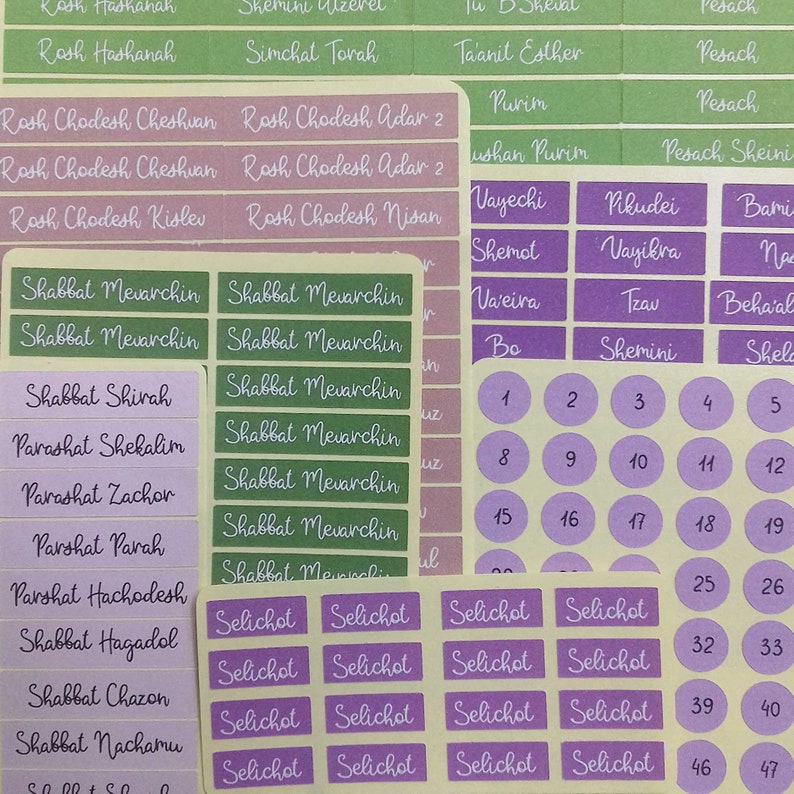 Rosh Hashanah Shemini Atzeret Tu B'Shevat Pesach
Rosh Hashanah Simchat Torah Ta'anit Esther Pesach
Purim Pesach
Purim Pesach Sheini
Rosh Chodesh Cheshvan Rosh Chodesh Adar 2
Rosh Chodesh Cheshvan Rosh Chodesh Adar 2
Rosh Chodesh Kislev Rosh Chodesh Nisan
Vayechi Pikudei
Shemot Vayikra
Va'eira Tzav
Bo Shemini
Shabbat Mevarchin Shabbat Mevarchin
Shabbat Mevarchin Shabbat Mevarchin
Shabbat Mevarchin
Shabbat Mevarchin
Shabbat Mevarchin
Shabbat Mevarchin
Shabbat Mevarchin
Shabbat Shirah
Parashat Shekalim
Parashat Zachor
Parshat Parah
Parshat Hachodesh
Shabbat Hagadol
Shabbat Chazon
Shabbat Nachamu
1 2 3 4 5
8 9 10 11 12
15 16 17 18 19
25 26
32 33
39 40
46 47
Selichot Selichot Selichot Selichot
Selichot Selichot Selichot Selichot
Selichot Selichot Selichot Selichot
Selichot Selichot Selichot Selichot